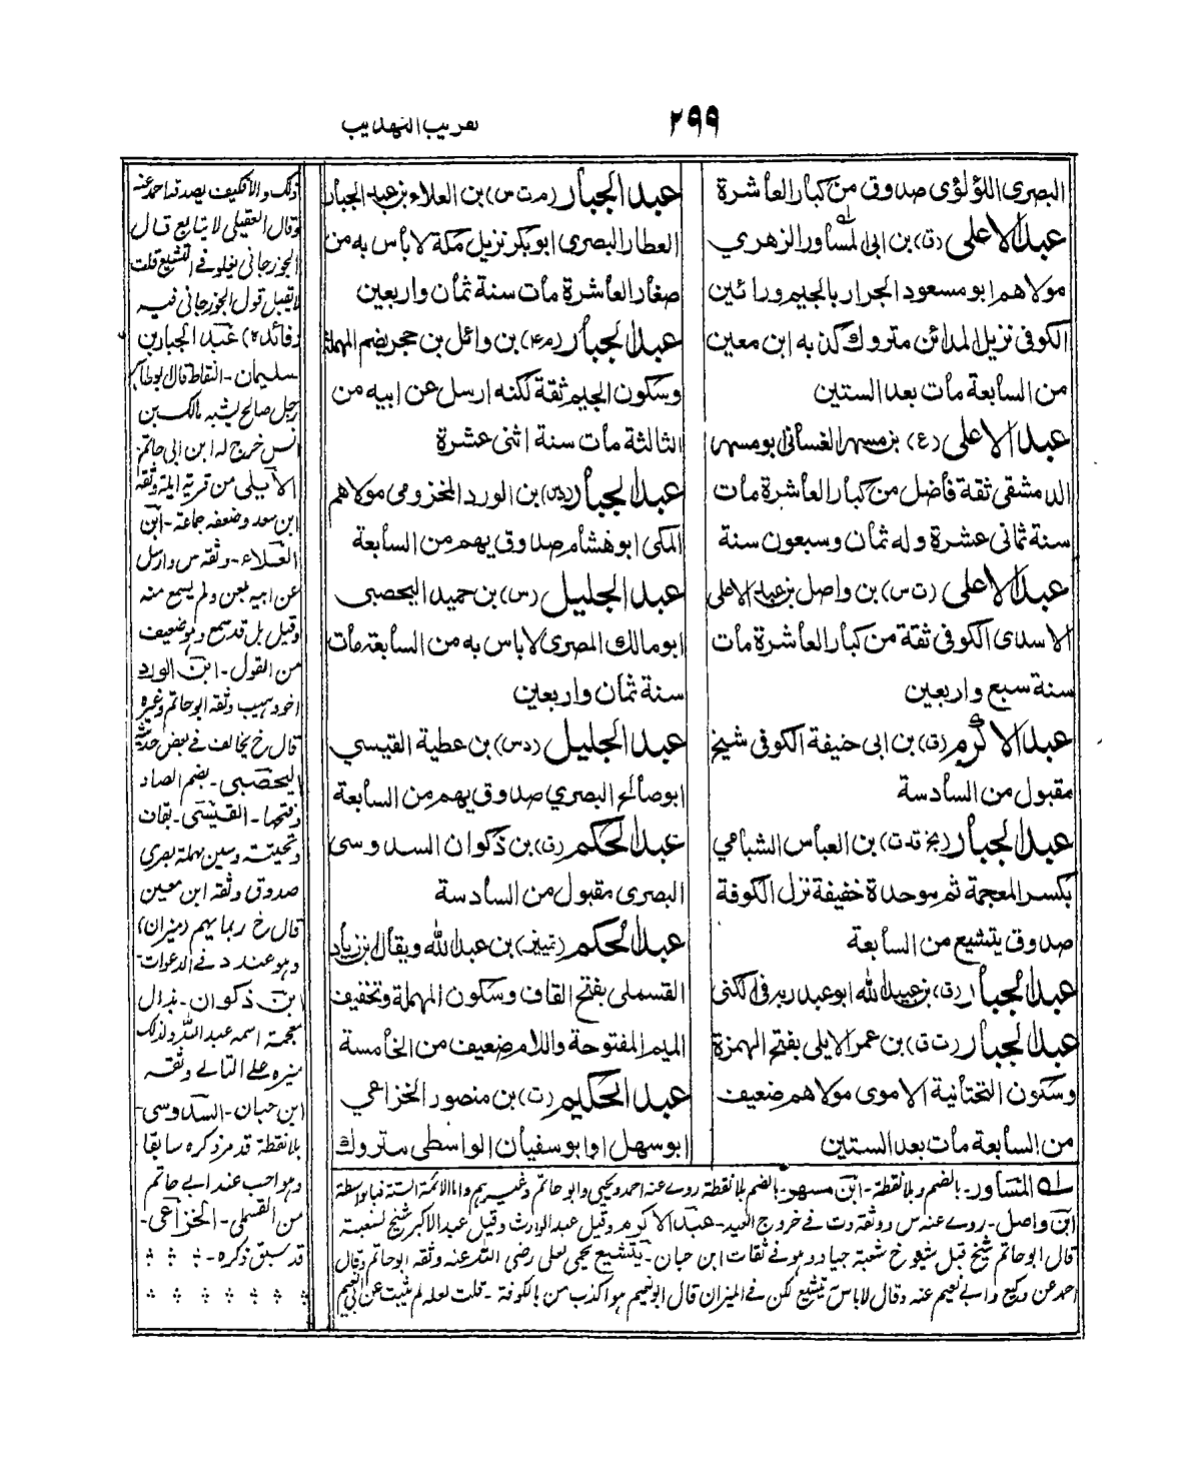 ٢٩٩
تقریب التهذیب
البصری اللؤلؤی صدوق من کبار العاشرة
عبد الاعلی (ق) بن ابی المساور الزهري
مولاهم ابو مسعود الجرار بالجیم ورائین
الکوفی نزیل المدائن متروک کذبه ابن معین
من السابعة مات بعد الستین
عبد الاعلی (ع) بن مسهر الغسانی ابو مسهر
الدمشقی ثقة فاضل من کبار العاشرة مات
سنة ثمانی عشرة وله ثمان وسبعون سنة
عبد الاعلی (ت س) بن واصل بن عبد الاعلی
الاسدی الکوفی ثقة من کبار العاشرة مات
سنة سبع واربعین
عبد الاکرم (ق) بن ابی حنیفة الکوفی شیخ
مقبول من السادسة
عبد الجبار (بخ قد ت) بن العباس الشبامي
بکسر المعجمة ثم موحدة خفیفة نزل الکوفة
صدوق یتشیع من السابعة
عبد الجبار (ق) بن عبید الله ابو عبد ربه فی الکنی
عبد الجبار (ت ق) بن عمر الایلی بفتح الهمزة
وسکون التحتانیة الاموی مولاهم ضعیف
من السابعة مات بعد الستین
عبد الجبار (م ت س) بن العلاء بن عبد الجبار
العطار البصری ابو بکر نزیل مکة لا بأس به من
صغار العاشرة مات سنة ثمان واربعین
عبد الجبار (م ۴) بن وائل بن حجر بضم المهملة
وسکون الجیم ثقة لکنه ارسل عن ابیه من
الثالثة مات سنة اثنی عشرة
عبد الجبار (د س) بن الورد المخزومی مولاهم
المکی ابو هشام صدوق یهم من السابعة
عبد الجلیل (س) بن حمید الیحصبی
ابو مالک المصری لا بأس به من السابعة مات
سنة ثمان واربعین
عبد الجلیل (د س) بن عطیة القیسي
ابو صالح البصري صدوق یهم من السابعة
عبد الحکم (ق) بن ذکوان السدوسی
البصری مقبول من السادسة
عبد الحکم (تمییز) بن عبد الله ویقال ابن زیاد
القسملی بفتح القاف وسکون المهملة وتخفیف
المیم المفتوحة واللام ضعیف من الخامسة
عبد الحکیم (ت) بن منصور الخزاعي
ابو سهل او ابو سفیان الواسطی متروک
ذلک والا فکیف یصدقه احمد عنه
وقال العقیلی لا یتابع قال
الجوزجانی یغلو فی التشیع قلت
لا یقبل قول الجوزجانی فیه
(فائدة) عبد الجبار بن
سلیمان - النفاط قال ابو طاب
رجل صالح یشبه مالک بن
انس خرج له ابن ابی حاتم
الایلی من قریة ایلة وثقه
ابن سعد وضعفه جماعة - ابن
العلاء - وثقه س وارسل
عن ابیه یعنی ولم یسمع منه
وقیل بل قد سمع وهو ضعیف
من القول - ابن الورد
اخو وهیب وثقه ابو حاتم وغیره
قال خ یخالف فی بعض حدیثه
الیحصبی - بضم الصاد
وفتحها - القیسی - بقاف
وتحیتة وسین مهملة بصری
صدوق وثقه ابن معین
قال خ ربما یهم (میزان)
وهو عند د فی الدعوات
ابن ذکوان - بذال
معجمة اسمه عبد الله ولذلک
میزه علی التالی وثقه
ابن حبان - السدوسی -
بلا نقطة قد مر ذکره سابقا
وهو احب عند ابی حاتم
من القسملی - الخزاعی -
قد سبق ذکره -
له المساور - بالضم وبلا نقطة - ابن مسهر - بالضم بلا نقطة روی عنه احمد ویحیی وابو حاتم وغیرهم واما الائمة الستة فبالواسطة
ابن واصل - روی عنه س ووثقه وت فی خروج العید - عبد الاکرم وقیل عبد الوارث وقیل عبد الاکبر شیخ لشعبة
قال ابو حاتم شیخ قبل شیوخ شعبة جیاد وهو فی ثقات ابن حبان - یتشیع یحیی لعلی رضی الله عنه وثقه ابو حاتم وقال
احمد عن وکیع وابی نعیم عنه وقال لا بأس یتشیع لکن فی المیزان قال ابو نعیم هو اکذب من بالکوفة - قلت لعله لم یثبت عن ابی نعیم